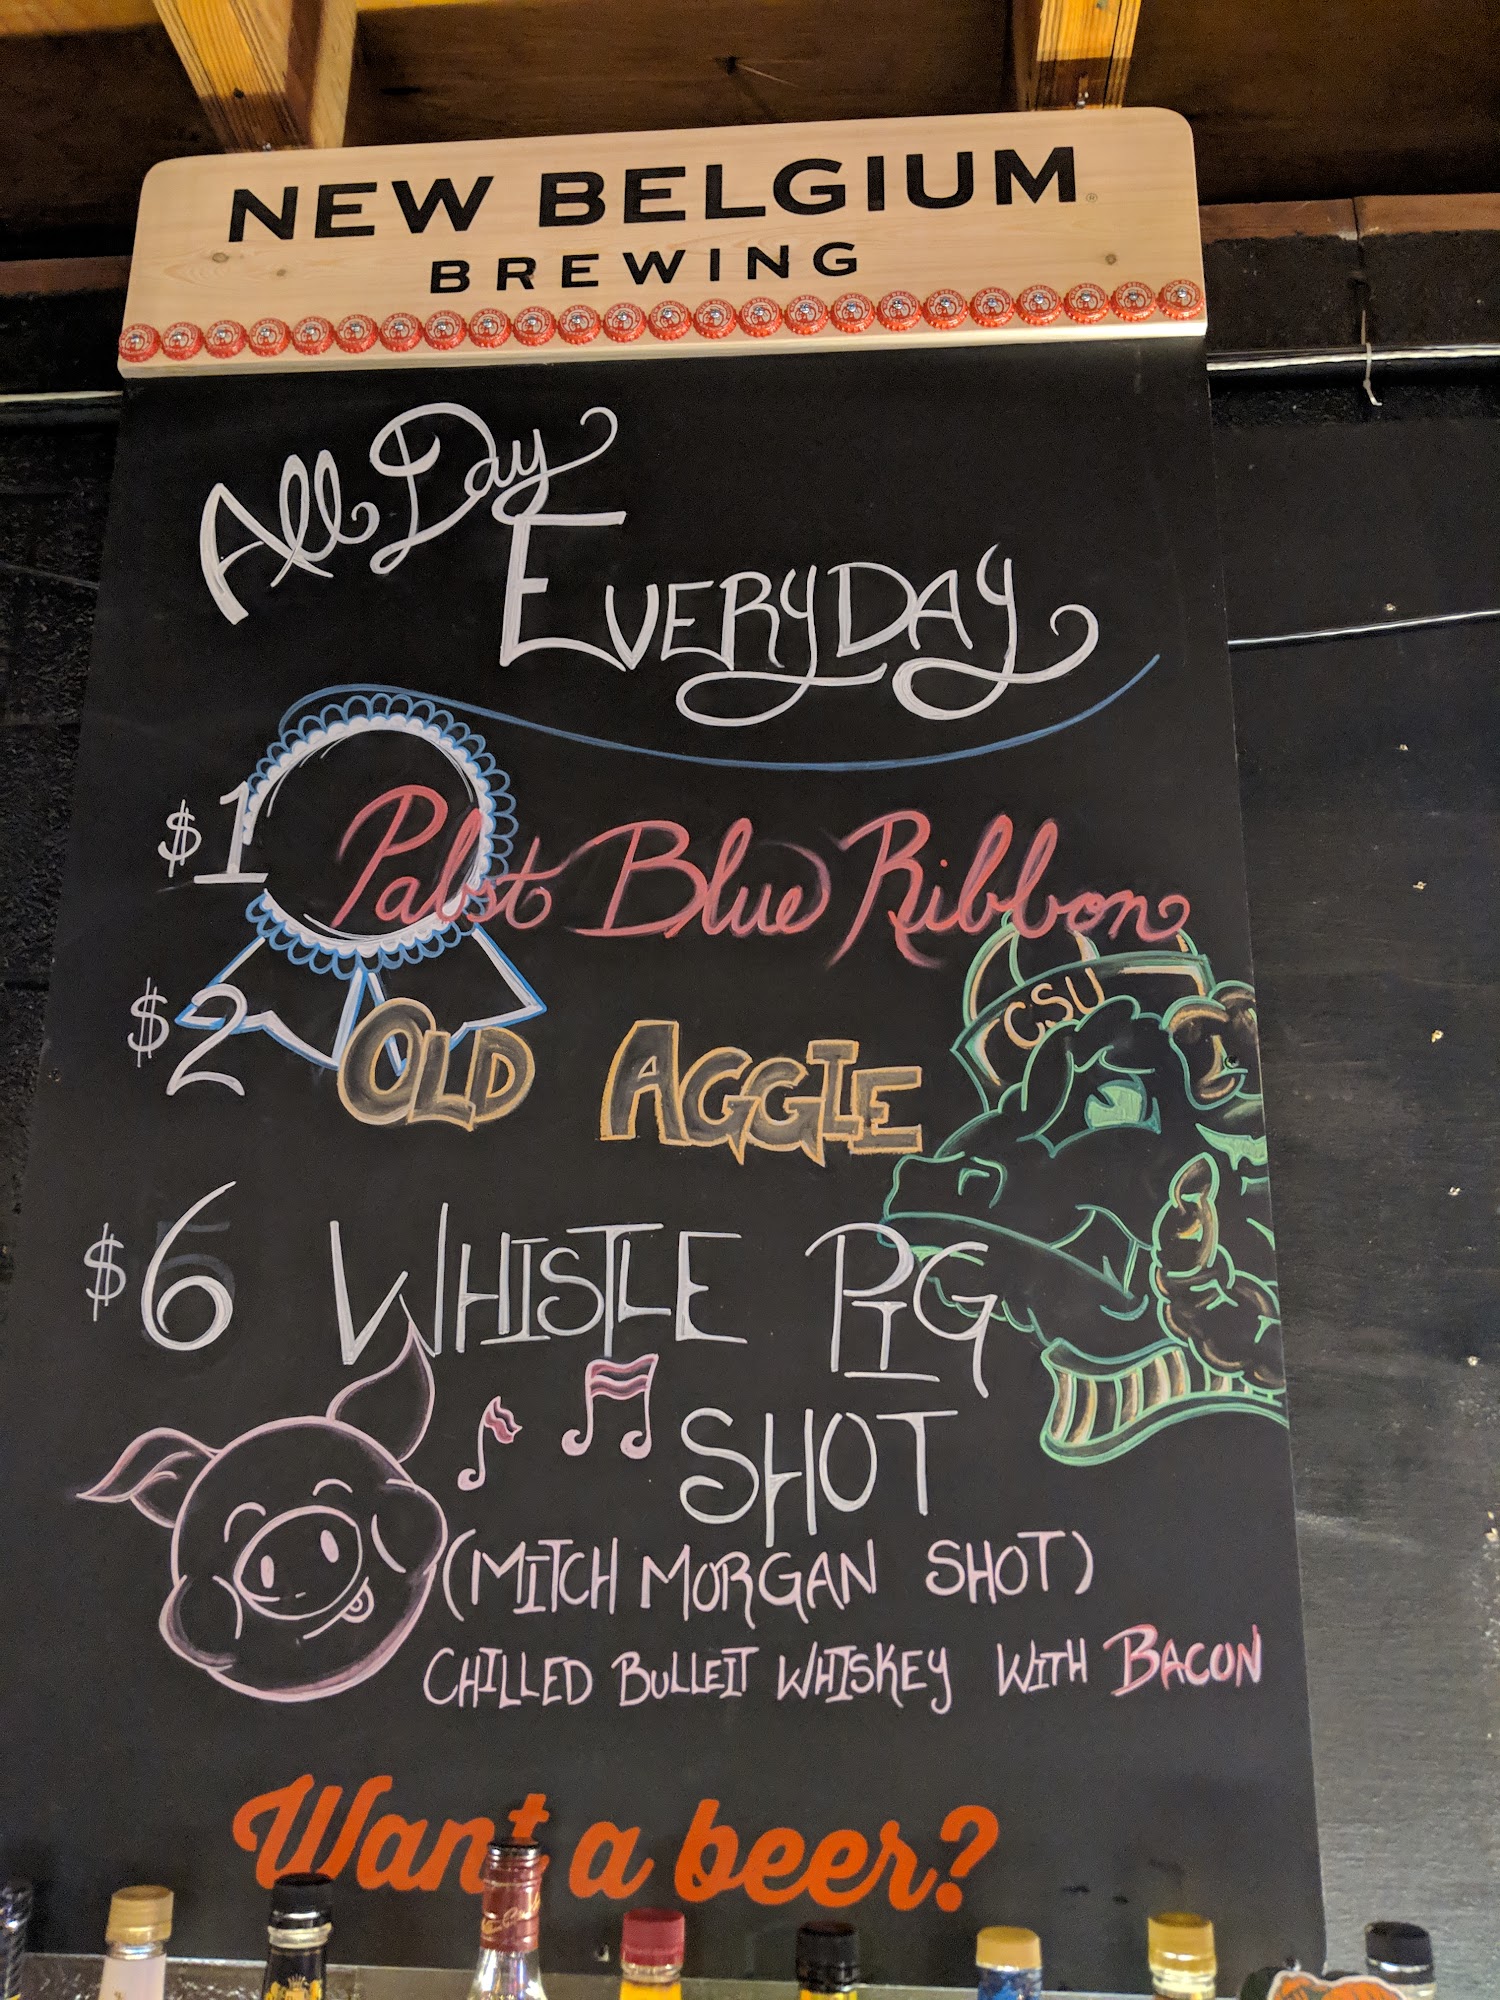 NEW BELGIUM®
BREWING
All Day
EVERYDAY
$1 Pabst Blue Ribbon
CSU
$2 OLD AGGIE
$6 WHISTLE PIG
SHOT
(MITCH MORGAN SHOT)
CHILLED BULLEIT WHISKEY WITH BACON
Want a beer?